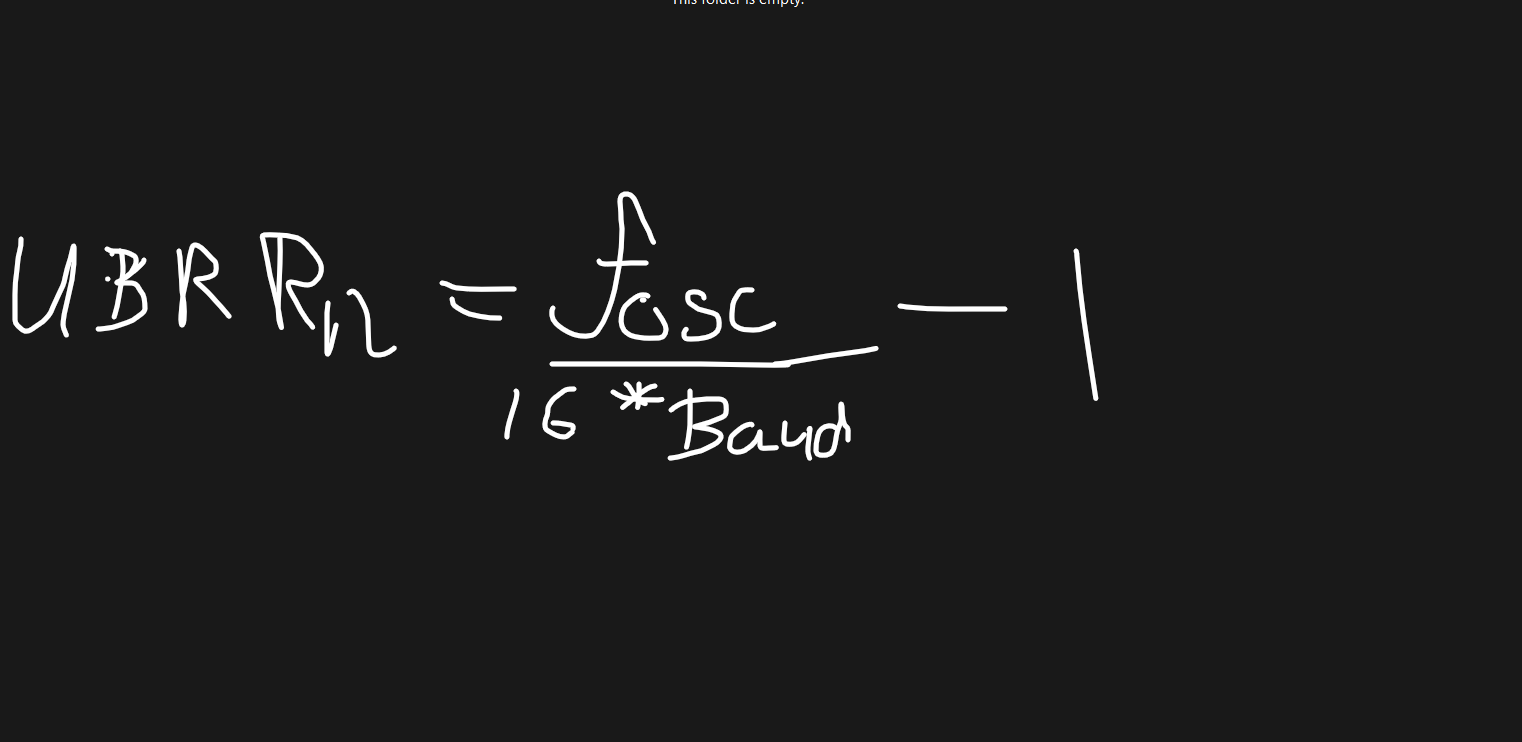 This folder is empty.
UBRRn = fosc / 16 * Baud - 1